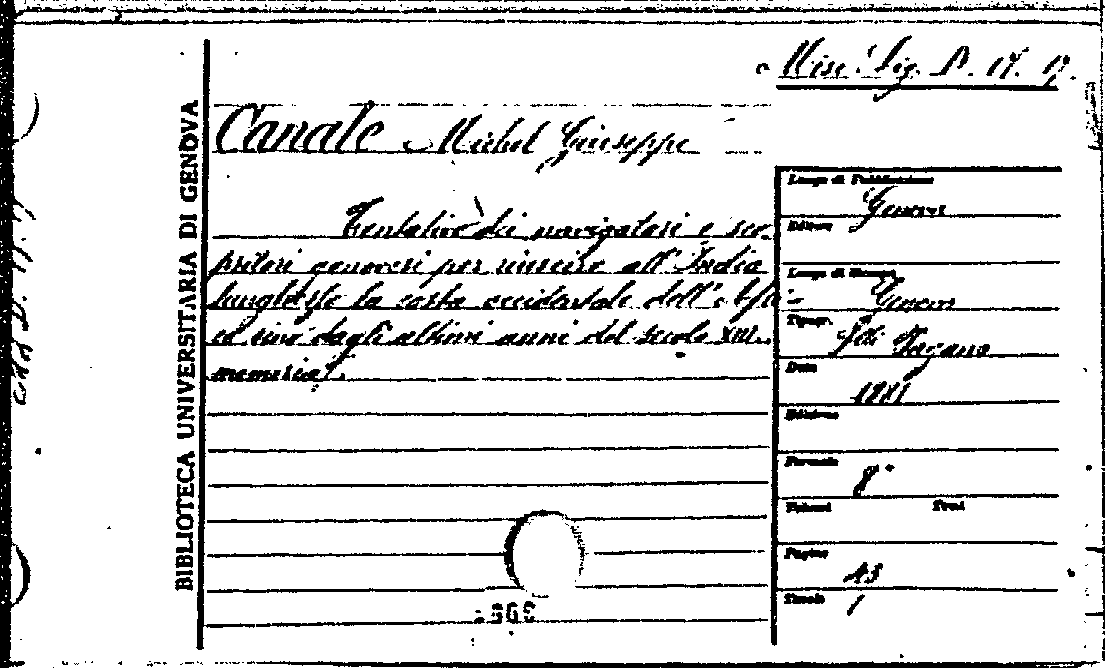 Misc. Lig. D. 17. 17.
BIBLIOTECA UNIVERSITARIA DI GENOVA
Canale Michel Giuseppe
Tentativo dei navigatori e sco-
pritori genovesi per riuscire all'India
lunghesso la costa occidentale dell'Afri-
ca sino dagli ultimi anni del secolo XIII.
memoria.
Luogo di Pubblicazione
Genova
Editore
Luogo di Stampa
Genova
Tipogr.
f.lli Pagano
Data
1881
Edizione
Formato
8°
Volumi Tomi
Pagine
43
Tavole
1